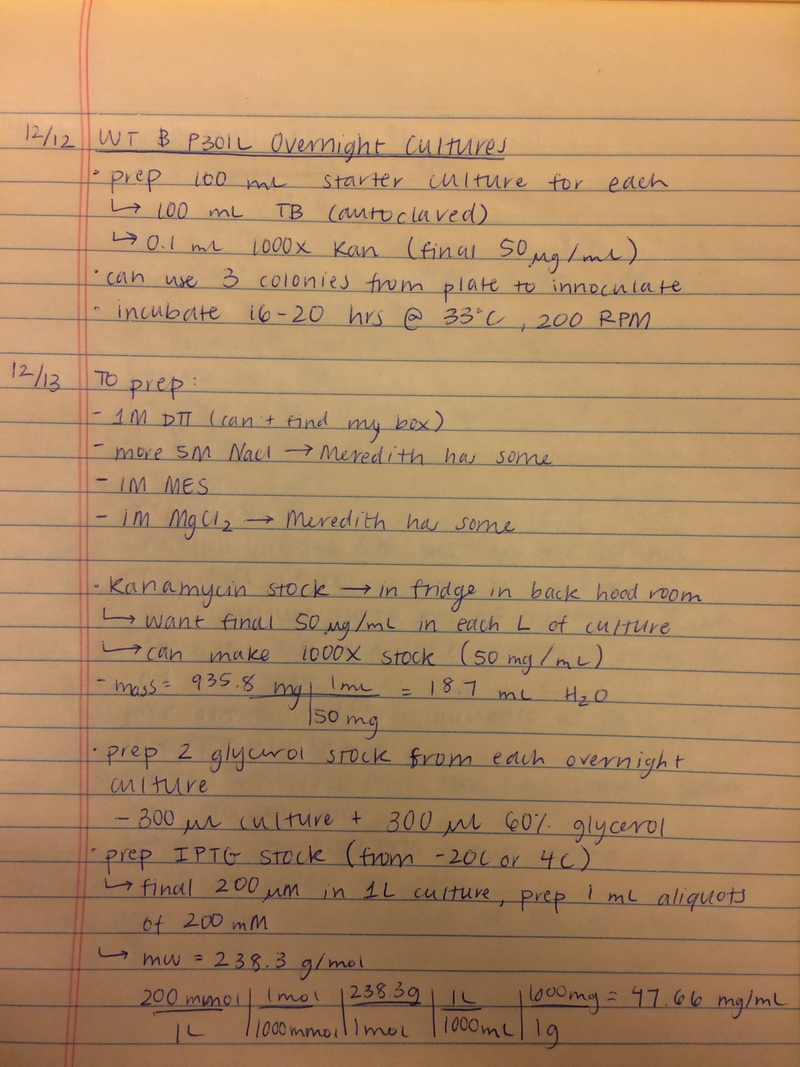 12/12 WT & P301L Overnight Cultures
· prep 100 mL starter culture for each
↳ 100 mL TB (autoclaved)
↳ 0.1 mL 1000x Kan (final 50 µg/mL)
· can use 3 colonies from plate to innoculate
· incubate 16-20 hrs @ 33°C, 200 RPM
12/13 To prep:
- 1M DTT (can't find my box)
- more 5M NaCl → Meredith has some
- 1M MES
- 1M MgCl₂ → Meredith has some
· Kanamycin stock → in fridge in back hood room
↳ want final 50 µg/mL in each L of culture
↳ can make 1000X stock (50 mg/mL)
- mass = 935.8 mg | 1mL = 18.7 mL H₂O
| 50 mg
· prep 2 glycerol stock from each overnight
culture
- 300 µL culture + 300 µL 60% glycerol
· prep IPTG stock (from -20C or 4C)
↳ final 200 µM in 1L culture, prep 1 mL aliquots
of 200 mM
↳ mw = 238.3 g/mol
200 mmol | 1mol | 238.3g | 1L | 1000mg = 47.66 mg/mL
1L | 1000mmol | 1mol | 1000mL | 1g